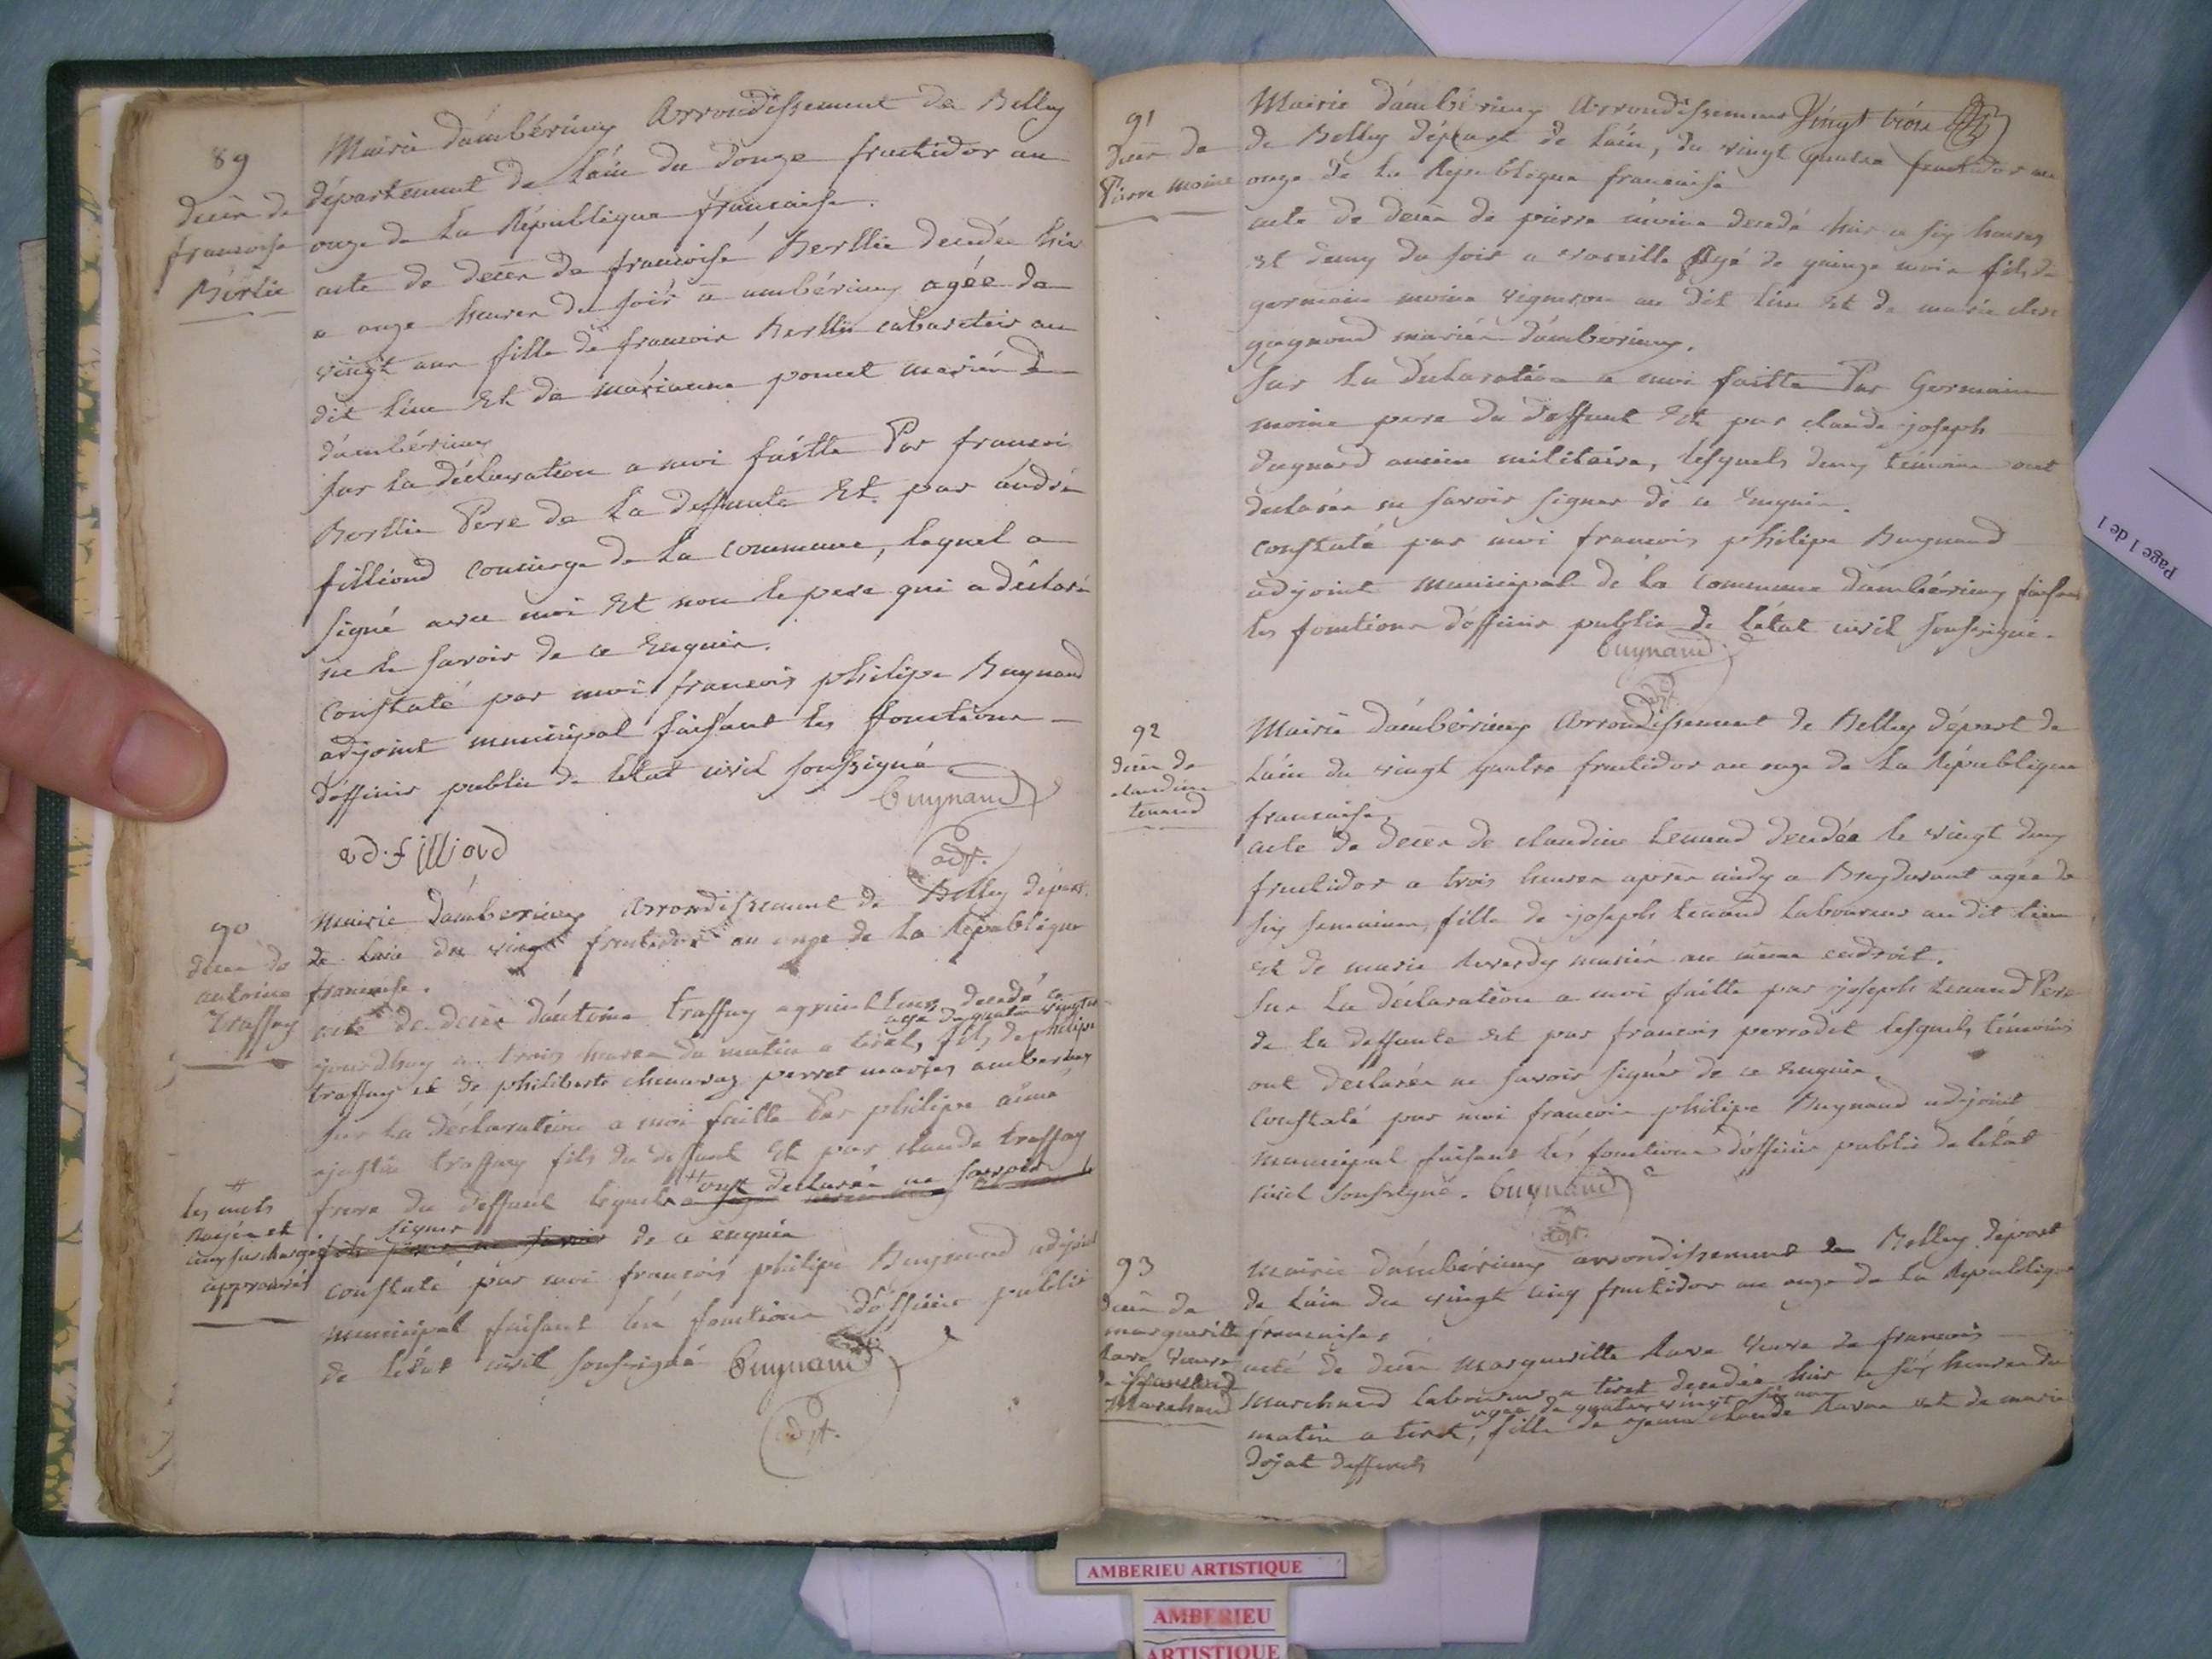 89
décès de
francoise
Berlie
Mairie d'ambérieux Arrondissement de Belley
département de l'ain du douze fructidor an
onze de la République francaise.
acte de décès de francoise Berllie decedée hier
a onze heures du soir a ambérieux agée de
vingt ans fille de francois Berllie cabaretier au
dit lieu Et de marianne poncet mariés
d'ambérieux
sur la déclaration a moi faitte Par francois
Berllie Pere de la deffunte Et par andré
filliond concierge de la commune, lequel a
signé avec moi Et non le pere qui a déclaré
ne le savoir de ce Enquis.
constaté par moi francois philipe Buynand
adjoint municipal faisant les fonctions
d'officier public de l'état civil soussigné
Buynand
adf.
ad. filliod
90
décès de
antoine
Traffay
Mairie d'amberieux Arrondissement de Belley départ.
de l'ain du vingt fructidor an onze de la République
francaise.
acte de décès d'antoine traffay agriculteur decedé ce
agé de quatre vingts
jourdhuy a trois heures du matin a tiret, fils de philipe
traffay et de philiberte perret mariés amberieux
sur la déclaration a moi faitte Par philipe aimé
traffay fils du deffunt Et par claude traffay
frere du deffunt lequels # ont declarés ne savoir
signer de ce enquis
#
les mots
Rayés et
surchargés
approuvés
constaté par moi francois philipe Buynand adjoint
municipal faisant les fonctions d'officier public
de l'état civil soussigné Buynand
adjt.
Vingt trois
91
décès de
Pierre moine
Mairie d'ambérieux Arrondissement
de Belley départ de l'ain, du vingt quatre fructidor an
onze de la République francaise
acte de décès de pierre moine decedé hier a six heures
et demy du soir a vareille agé de quinze mois fils de
germain moine vigneron au dit lieu Et de marie
gagnand mariés d'ambérieux.
sur la déclaration a moi faitte Par Germain
moine pere du deffunt Et par claude joseph
dugnard ancien militaire, lesquels deux témoins ont
declarés ne savoir signer de ce Enquis.
constaté par moi francois philipe Buynand
adjoint municipal de la commune d'ambérieux faisant
les fonctions d'officier public de l'état civil soussigné.
Buynand
adjt
92
décès de
claudine
tenand
Mairie d'ambérieux Arrondissement de Belley départ de
l'ain du vingt quatre fructidor an onze de la République
francaise.
acte de décès de claudine tenand decedée le vingt deux
fructidor a trois heures après midy a Breydevant agée de
six semaines, fille de joseph tenand laboureur au dit lieu
et de marie mariés au même endroit.
sur la déclaration a moi faitte par joseph tenand Pere
de la deffunte Et par francois perrodet lesquels témoins
ont declarés ne savoir signer de ce enquis.
constaté par moi francois philipe Buynand adjoint
municipal faisant les fonctions d'officier public de l'état
civil soussigné. Buynand
adjt.
93
décès de
margueritte
Rave veuve
de
Marchand
Mairie d'ambérieux arrondissement de Belley départ
de l'ain du vingt cinq fructidor an onze de la République
francaise.
acte de décès Margueritte Rave Veuve de francois
Marchand laboureur a tiret decedée hier a six heures du
agée de quatre vingt six ans
matin a tiret, fille de jeune claude Rave et de marie
dojat deffunts
Page 1 de 1
AMBERIEU ARTISTIQUE
AMBERIEU
ARTISTIQUE